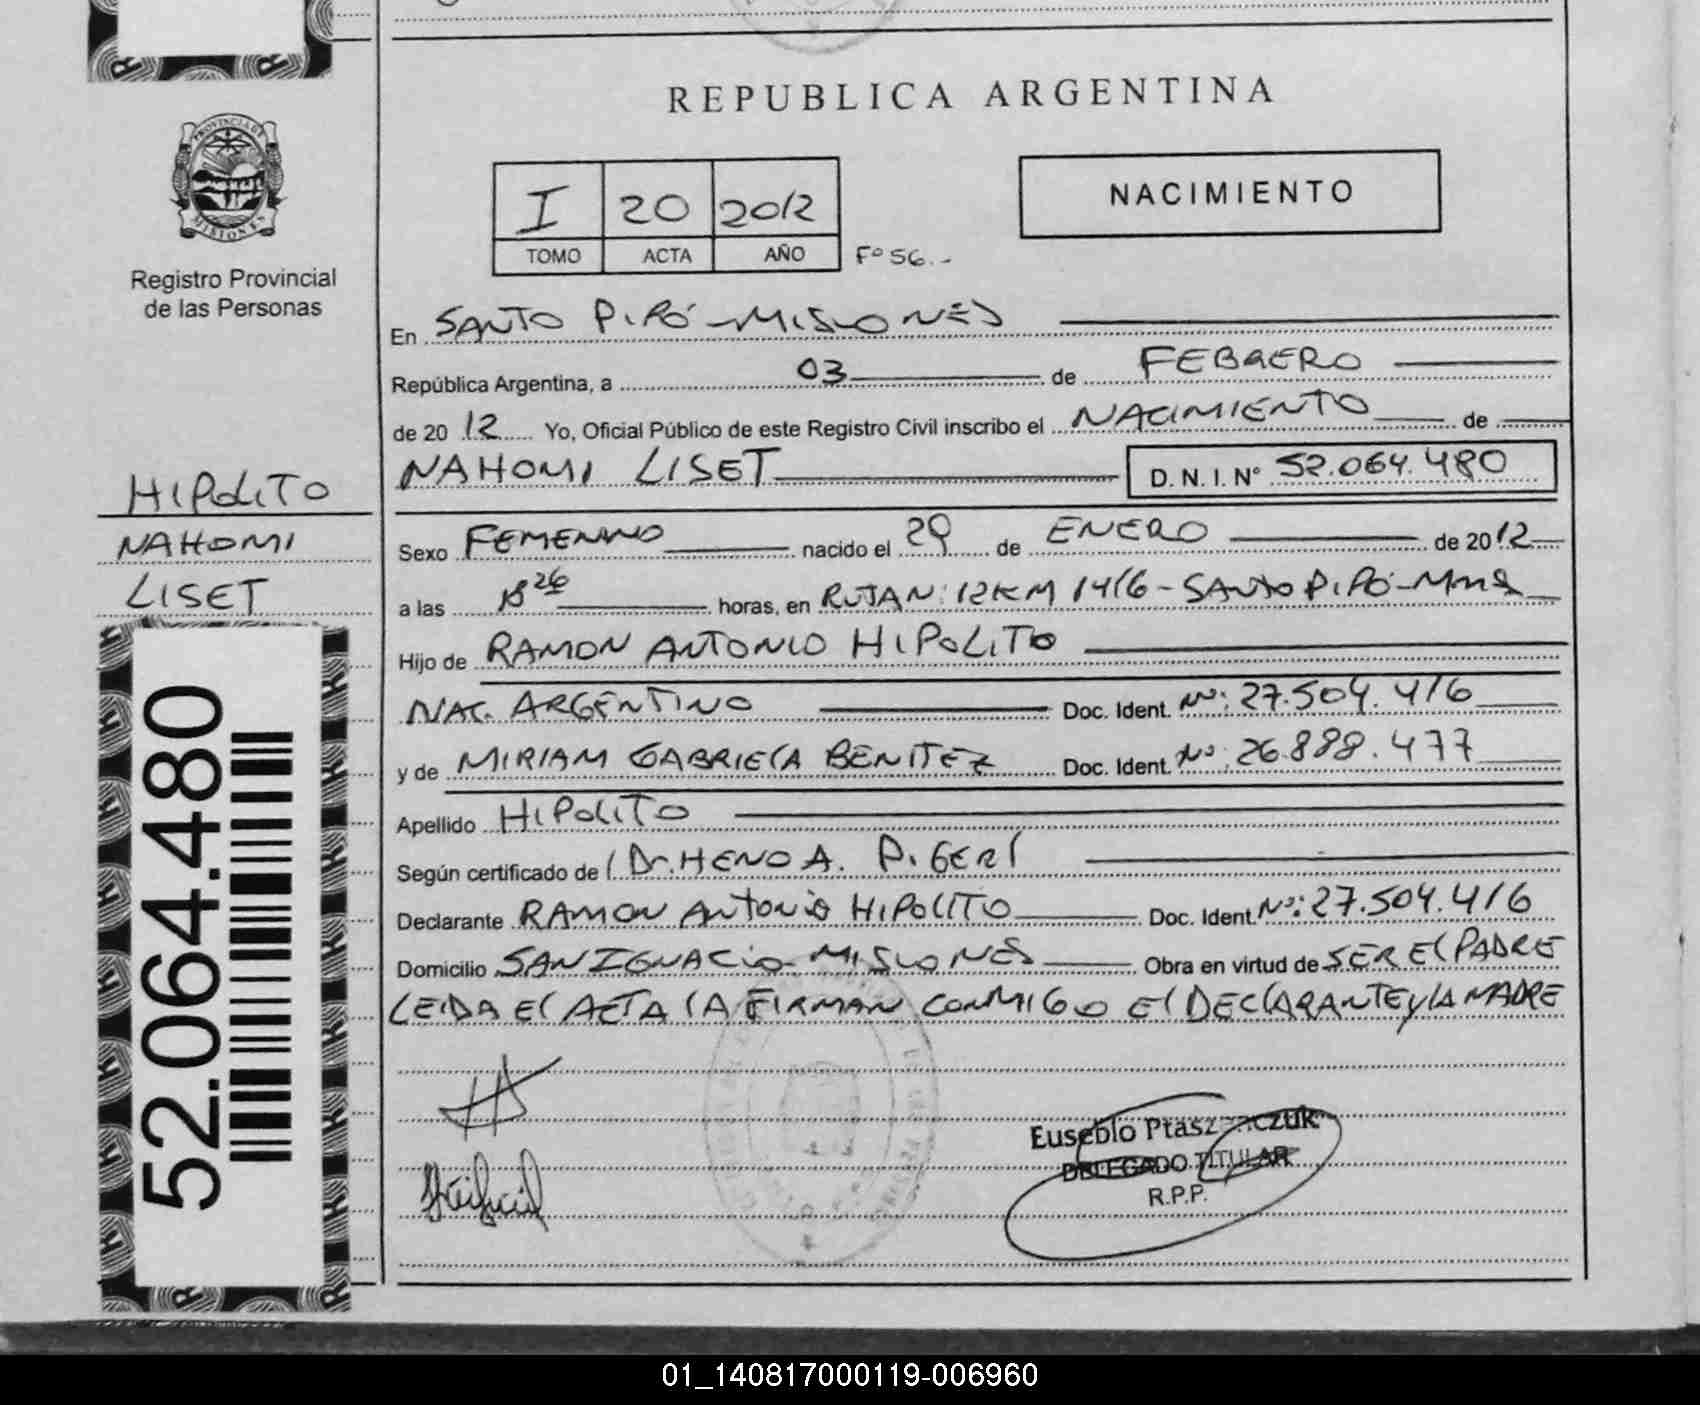 REPUBLICA ARGENTINA
PROVINCIA DE MISIONES
Registro Provincial
de las Personas
I 20 2012
TOMO ACTA AÑO Fº 56.-
NACIMIENTO
En SANTO PIPÓ - MISIONES
República Argentina, a 03 de FEBRERO
de 20 12 Yo, Oficial Público de este Registro Civil inscribo el NACIMIENTO de
NAHOMI LISET D. N. I. Nº 52.064.480
Sexo FEMENINO nacido el 29 de ENERO de 2012
a las horas, en RUTA N: 12 KM 1416 - SANTO PIPÓ - Mnes
Hijo de RAMON ANTONIO HIPOLITO
NAC. ARGENTINO Doc. Ident. Nº: 27.504.416
y de MIRIAM GABRIELA BENITEZ Doc. Ident. Nº: 26.888.477
Apellido HIPOLITO
Según certificado de Dr. HENO A. PIGERL
Declarante RAMON ANTONIO HIPOLITO Doc. Ident. Nº: 27.504.416
Domicilio SAN IGNACIO - MISIONES Obra en virtud de SER EL PADRE
LEIDA EL ACTA LA FIRMAN CONMIGO EL DECLARANTE y LA MADRE
HIPOLITO
NAHOMI
LISET
52.064.480
Eusebio
DELEGADO TITULAR
R.P.P.
01_140817000119-006960